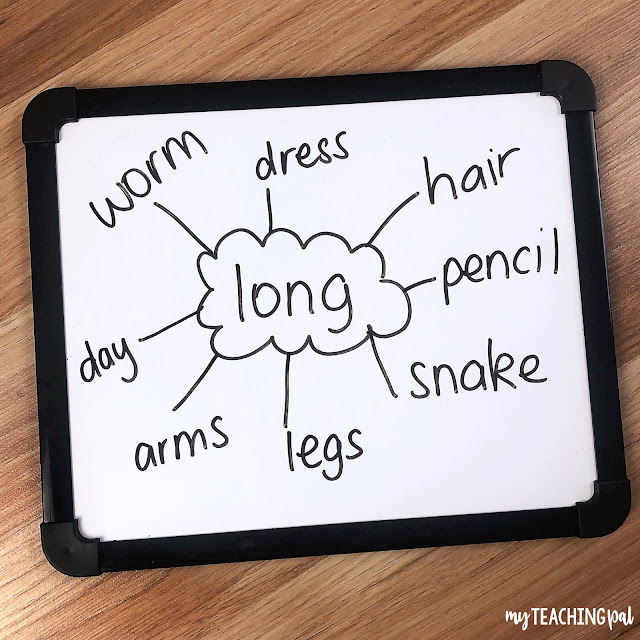 worm
dress
hair
long
pencil
day
snake
arms
legs
my TEACHING pal